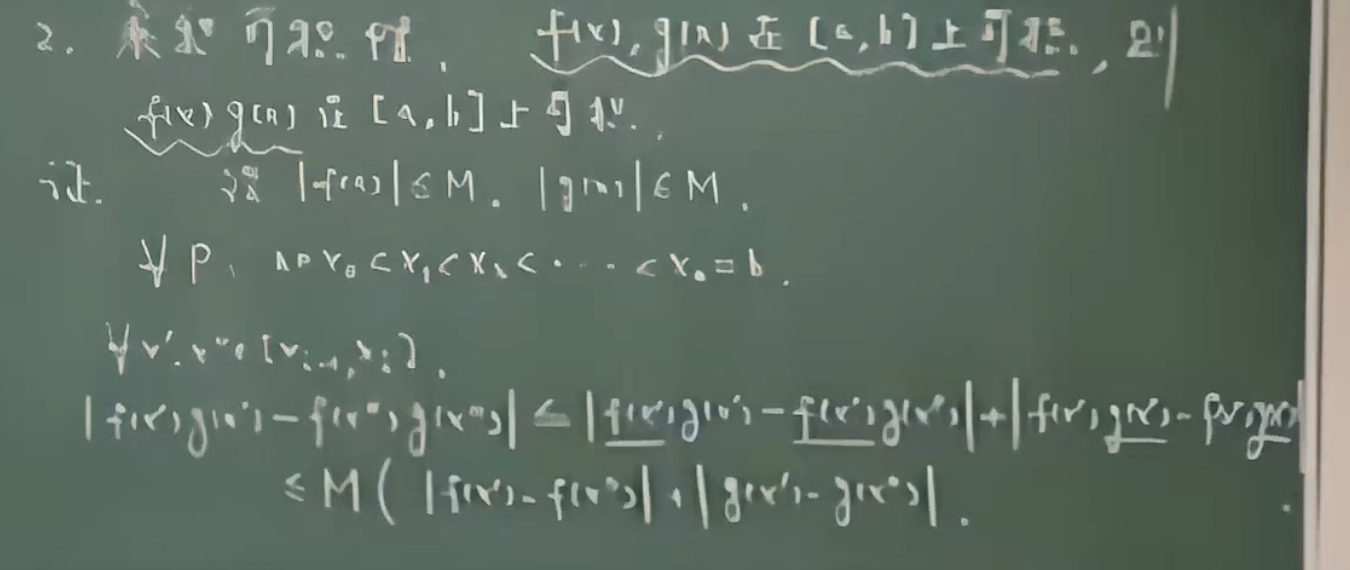 2. 乘积可积性. f(x), g(x) 在 [a, b] 上可积, 则
f(x) g(x) 在 [a, b] 上可积.
证. 设 |f(x)| ≤ M. |g(x)| ≤ M.
∀ P, x₀ < x₁ < x₂ < ··· < xₙ = b.
∀ x', x'' ∈ [xᵢ₋₁, xᵢ].
|f(x')g(x') - f(x'')g(x'')| ≤ |f(x')g(x') - f(x')g(x'')| + |f(x')g(x'') - f(x'')g(x'')|
≤ M ( |f(x') - f(x'')| + |g(x') - g(x'')|.